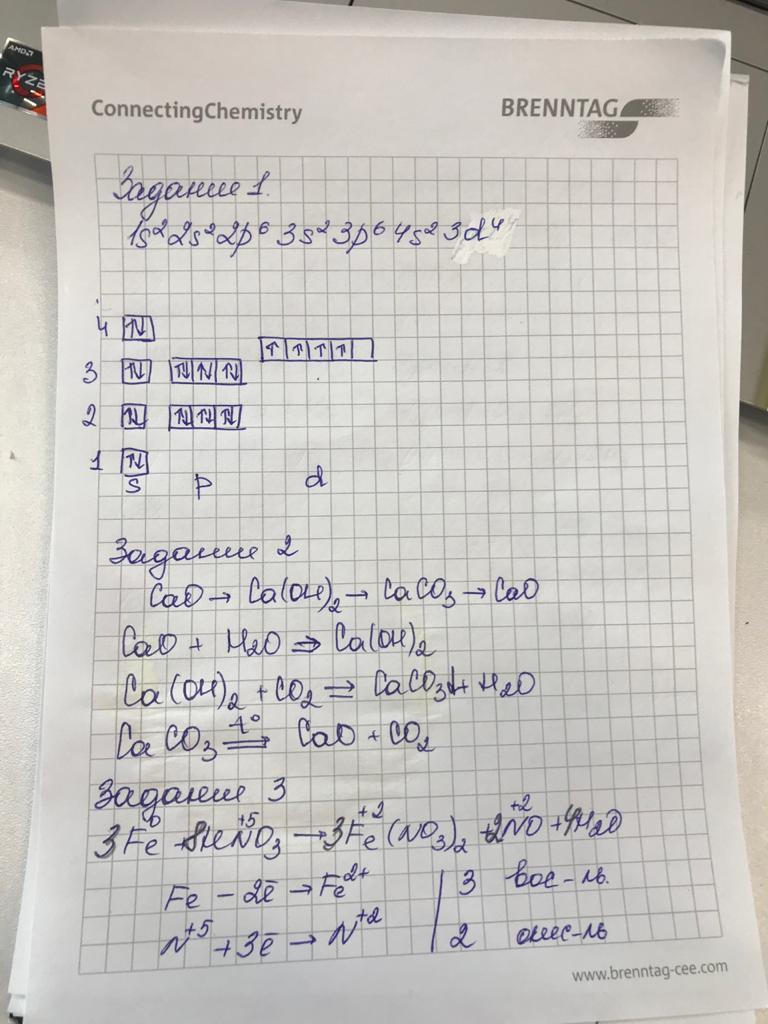 AMD
RYZE
ConnectingChemistry
BRENNTAG
Задание 1.
1s² 2s² 2p⁶ 3s² 3p⁶ 4s² 3d⁴
4 ↑↓
↑ ↑ ↑ ↑
3 ↑↓ ↑↓ ↑↓ ↑↓
2 ↑↓ ↑↓ ↑↓ ↑↓
1 ↑↓
s p d
Задание 2
CaO → Ca(OH)₂ → CaCO₃ → CaO
CaO + H₂O ⇒ Ca(OH)₂
Ca(OH)₂ + CO₂ = CaCO₃↓ + H₂O
CaCO₃ =t°= CaO + CO₂
Задание 3
3Fe⁰ + 8HN⁺⁵O₃ → 3Fe⁺²(NO₃)₂ + 2N⁺²O + 4H₂O
Fe - 2ē → Fe²⁺ | 3 вос-ль.
N⁺⁵ + 3ē → N⁺² | 2 окис-ль
www.brenntag-cee.com